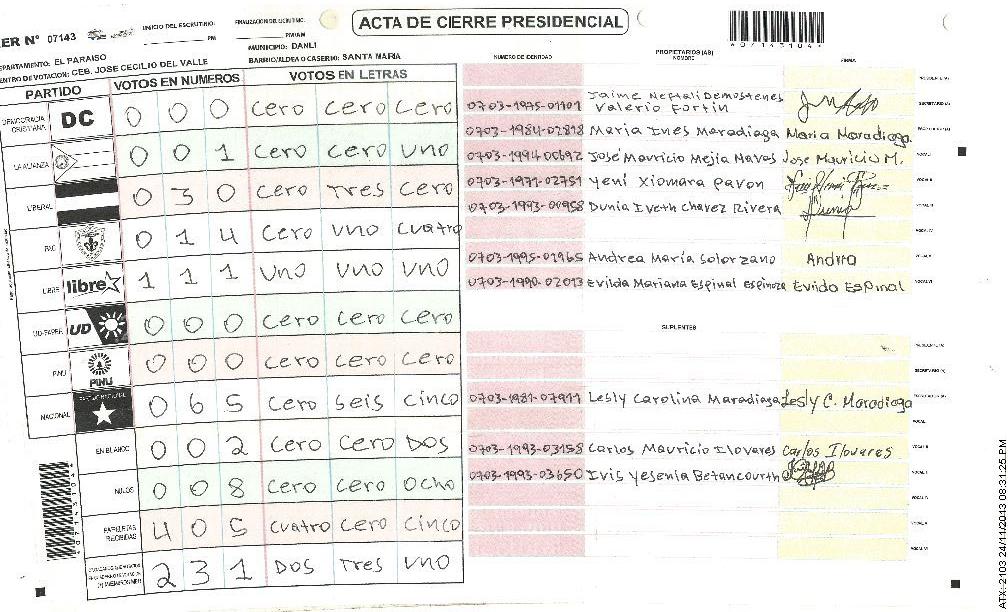 ACTA DE CIERRE PRESIDENCIAL
MER N° 07143
INICIO DEL ESCRUTINIO: PM
FINALIZACION DEL ESCRUTINIO: PM/AM
071431044
DEPARTAMENTO: EL PARAISO
MUNICIPIO: DANLI
CENTRO DE VOTACION: CEB. JOSE CECILIO DEL VALLE
BARRIO/ALDEA O CASERIO: SANTA MARIA
PARTIDO VOTOS EN NUMEROS VOTOS EN LETRAS
DEMOCRACIA CRISTIANA DC 0 0 0 Cero Cero Cero
LA ALIANZA 0 0 1 Cero Cero Uno
LIBERAL 0 3 0 Cero Tres Cero
PAC 0 1 4 Cero Uno Cuatro
LIBRE libre 1 1 1 Uno Uno Uno
UD-FAPER UD 0 0 0 Cero Cero Cero
PINU PINU 0 0 0 Cero Cero Cero
NACIONAL 0 6 5 Cero Seis Cinco
EN BLANCO 0 0 2 Cero Cero Dos
NULOS 0 0 8 Cero Cero Ocho
PAPELETAS RECIBIDAS 4 0 5 Cuatro Cero Cinco
2 3 1 Dos Tres Uno
NUMERO DE IDENTIDAD PROPIETARIOS (AS) NOMBRE FIRMA
PRESIDENTE (A)
0703-1975-01101 Jaime Neftali Demostenes Valerio Fortin SECRETARIO (A)
0703-1984-02818 Maria Ines Maradiaga Maria Maradiaga
0703-1994-00692 José Mauricio Mejia Navas Jose Mauricio M. VOCAL I
0703-1971-02751 Yeni Xiomara Pavon VOCAL II
0703-1993-00958 Dunia Iveth Chavez Rivera VOCAL III
VOCAL IV
0703-1995-01965 Andrea María Solorzano Andrea VOCAL V
0703-1990-02013 Evilda Mariana Espinal Espinoza Evido Espinal VOCAL VI
SUPLENTES
PRESIDENTE (A)
SECRETARIO (A)
0703-1981-07911 Lesly Carolina Maradiaga Lesly C. Maradiaga
VOCAL I
0703-1993-03158 Carlos Mauricio Ilovares Carlos Ilovares VOCAL II
0703-1993-03650 Ivis Yesenia Betancourth
VOCAL IV
VOCAL V
VOCAL VI
24/11/2013 08:31:25 PM